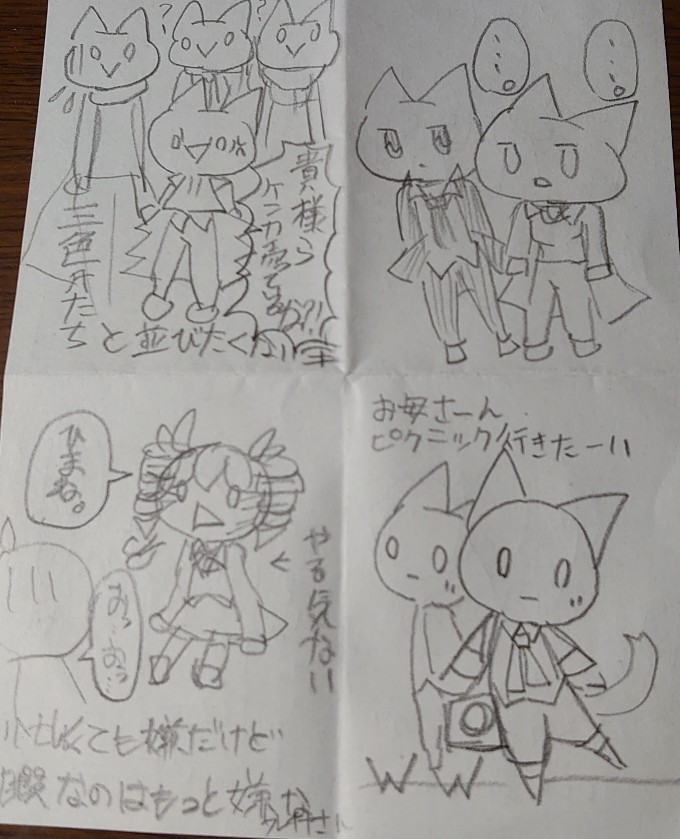 ? ?
貴様ら
ケンカ売ってるのか?!
三色丼たち
と並びたくない宰
……
……
ひまね。
やる気ない
おっ…おっ
忙しくても嫌だけど
暇なのはもっと嫌な
お母さーん
ピクニック行きたーい